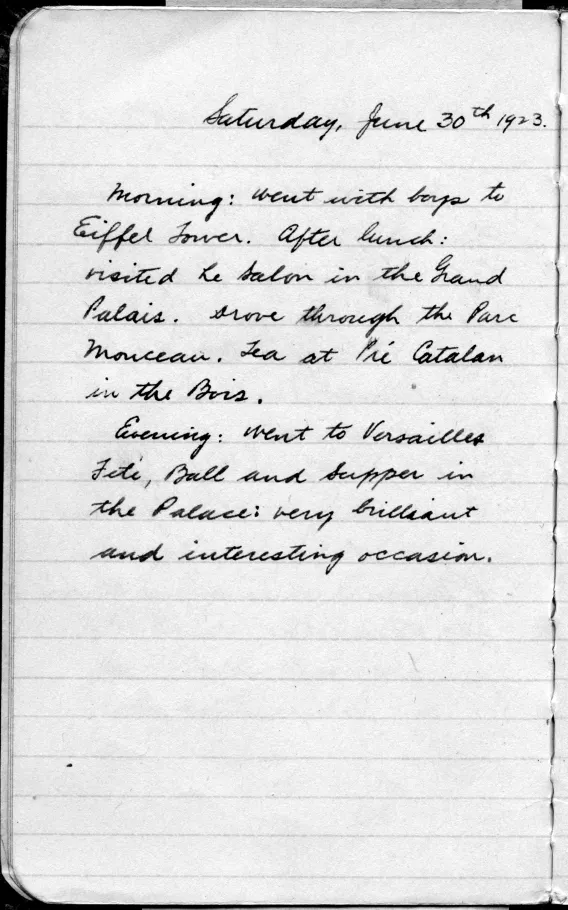 Saturday, June 30th 1923.
Morning: went with boys to
Eiffel Tower. After lunch:
visited Le Salon in the Grand
Palais. Drove through the Parc
Monceau. Tea at Pré Catalan
in the Bois.
Evening: went to Versailles
Feté, Ball and Supper in
the Palace: very brilliant
and interesting occasion.